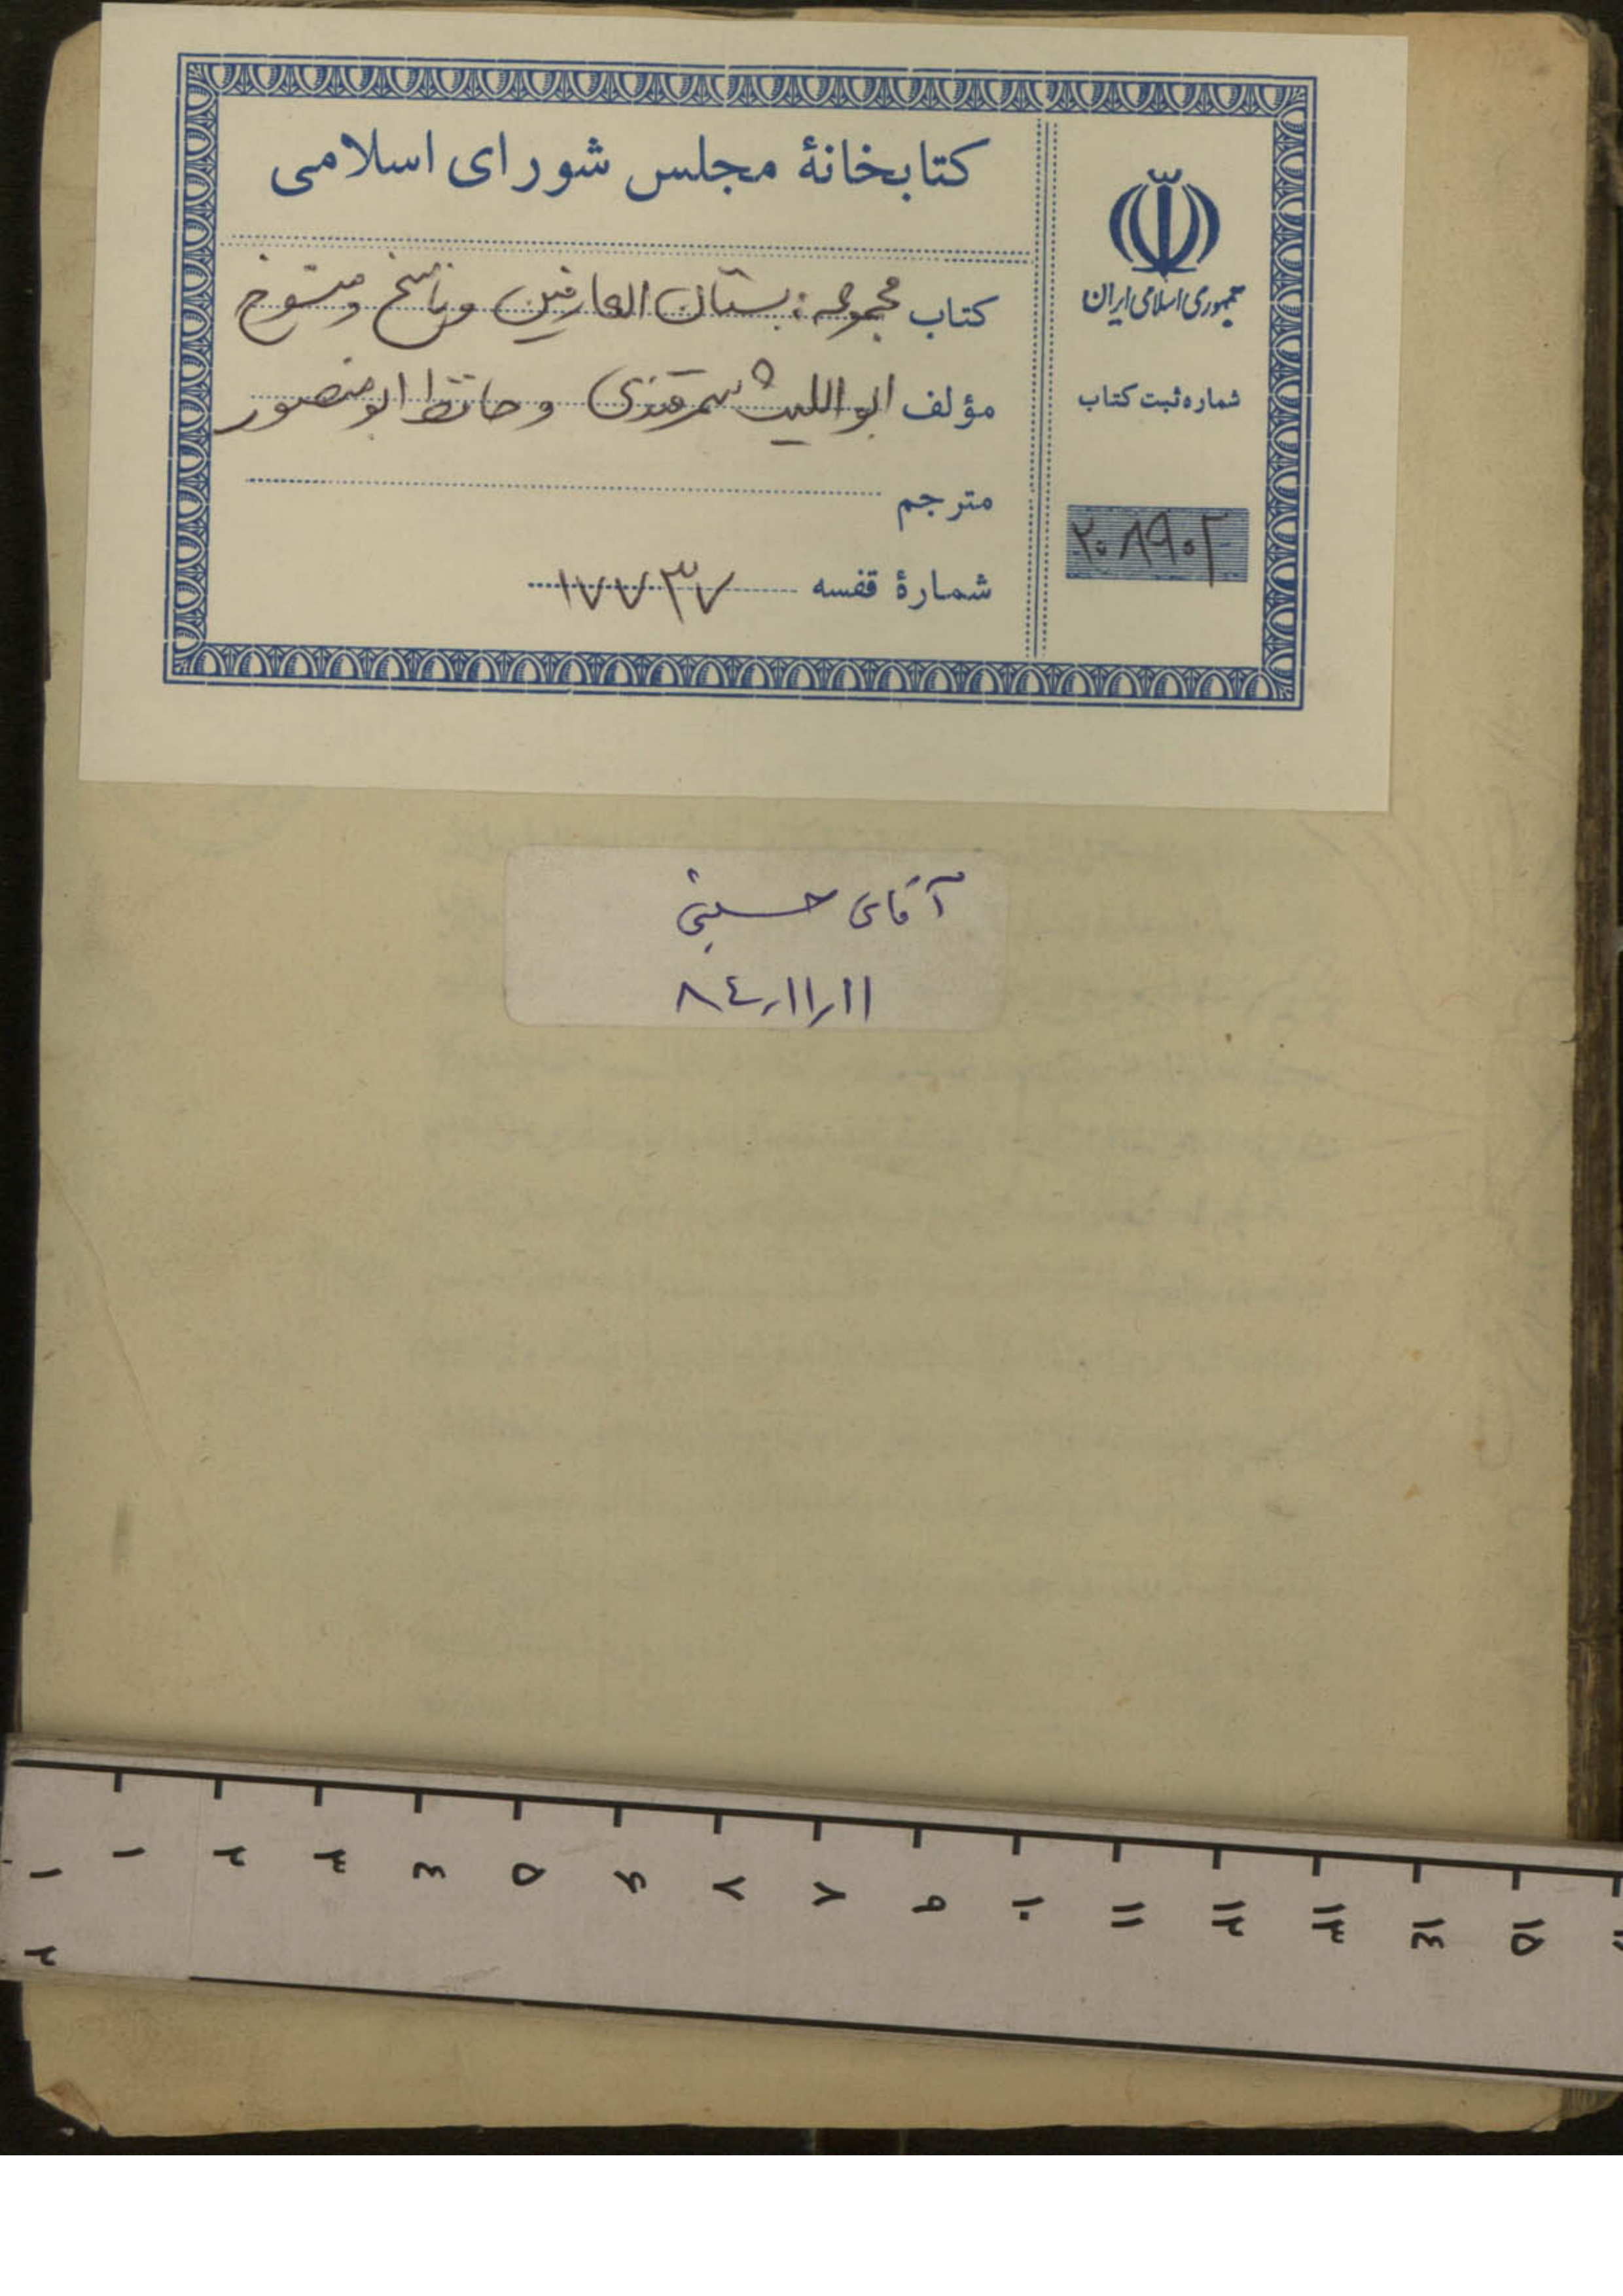 کتابخانهٔ مجلس شورای اسلامی
کتاب مجموعه: بستان العارفین و ناسخ و منسوخ
مؤلف ابو اللیث سمرقندی و حافظ ابو منصور
مترجم
شمارهٔ قفسه ۱۷۷۳۷
جمهوری اسلامی ایران
شماره ثبت کتاب
۲۰۸۹۰۲
آقای حسینی
۸٤,۱۱,۱۱
۱ ۲ ۳ ٤ ۵ ۶ ۷ ۸ ۹ ۱۰ ۱۱ ۱۲ ۱۳ ۱٤ ۱۵
۱
۲